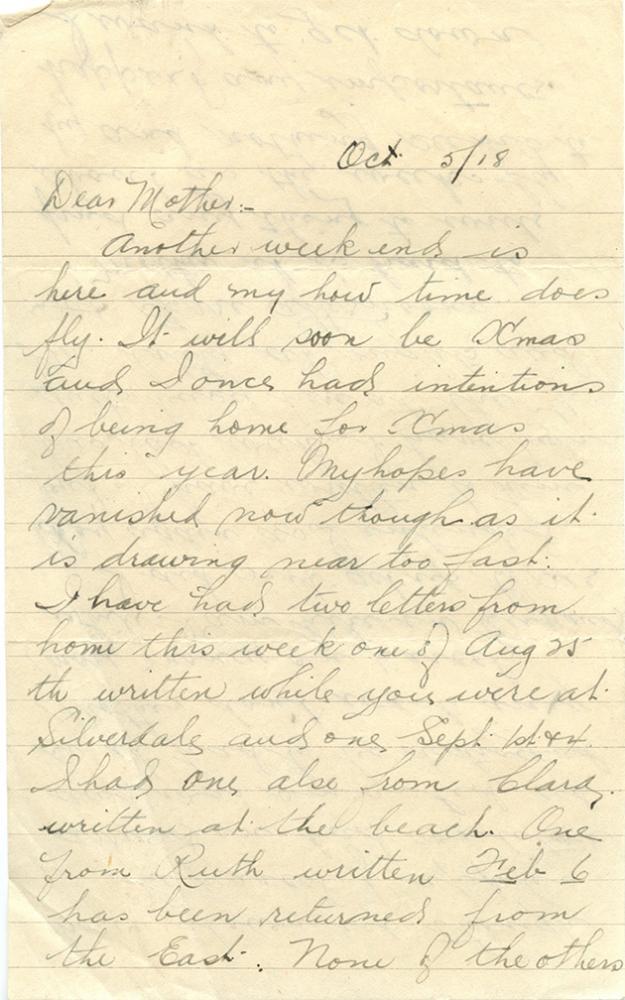 Oct 5/18
Dear Mother:-
Another week end is
here and my how time does
fly. It will soon be Xmas
and I once had intentions
of being home for Xmas
this year. My hopes have
vanished now though as it
is drawing near too fast.
I have had two letters from
home this week one of Aug 25
th written while you were at
Silverdale and one Sept 1st & 4.
I had one also from Clara,
written at the beach. One
from Ruth written Feb 6
has been returned from
the East. None of the others